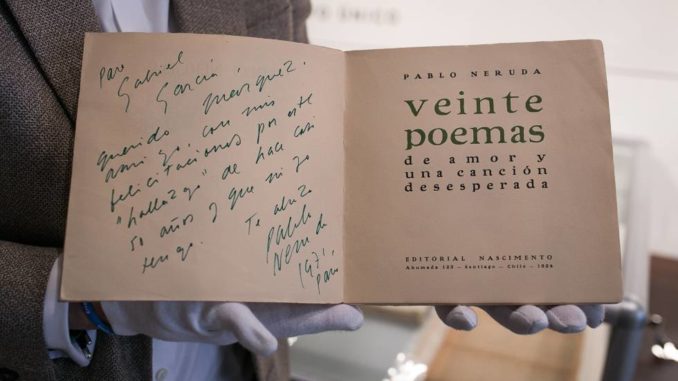 O ÚNICO
Para
Gabriel
García
Márquez,
querido
amigo, con mis
felicitaciones por este
"hallazgo" de hace casi
50 años y que no yo
tengo. Te abraza
Pablo
Neruda
1971
París
PABLO NERUDA
veinte
poemas
de amor y
una canción
desesperada
EDITORIAL NASCIMENTO
Ahumada 125 — Santiago — Chile — 1924